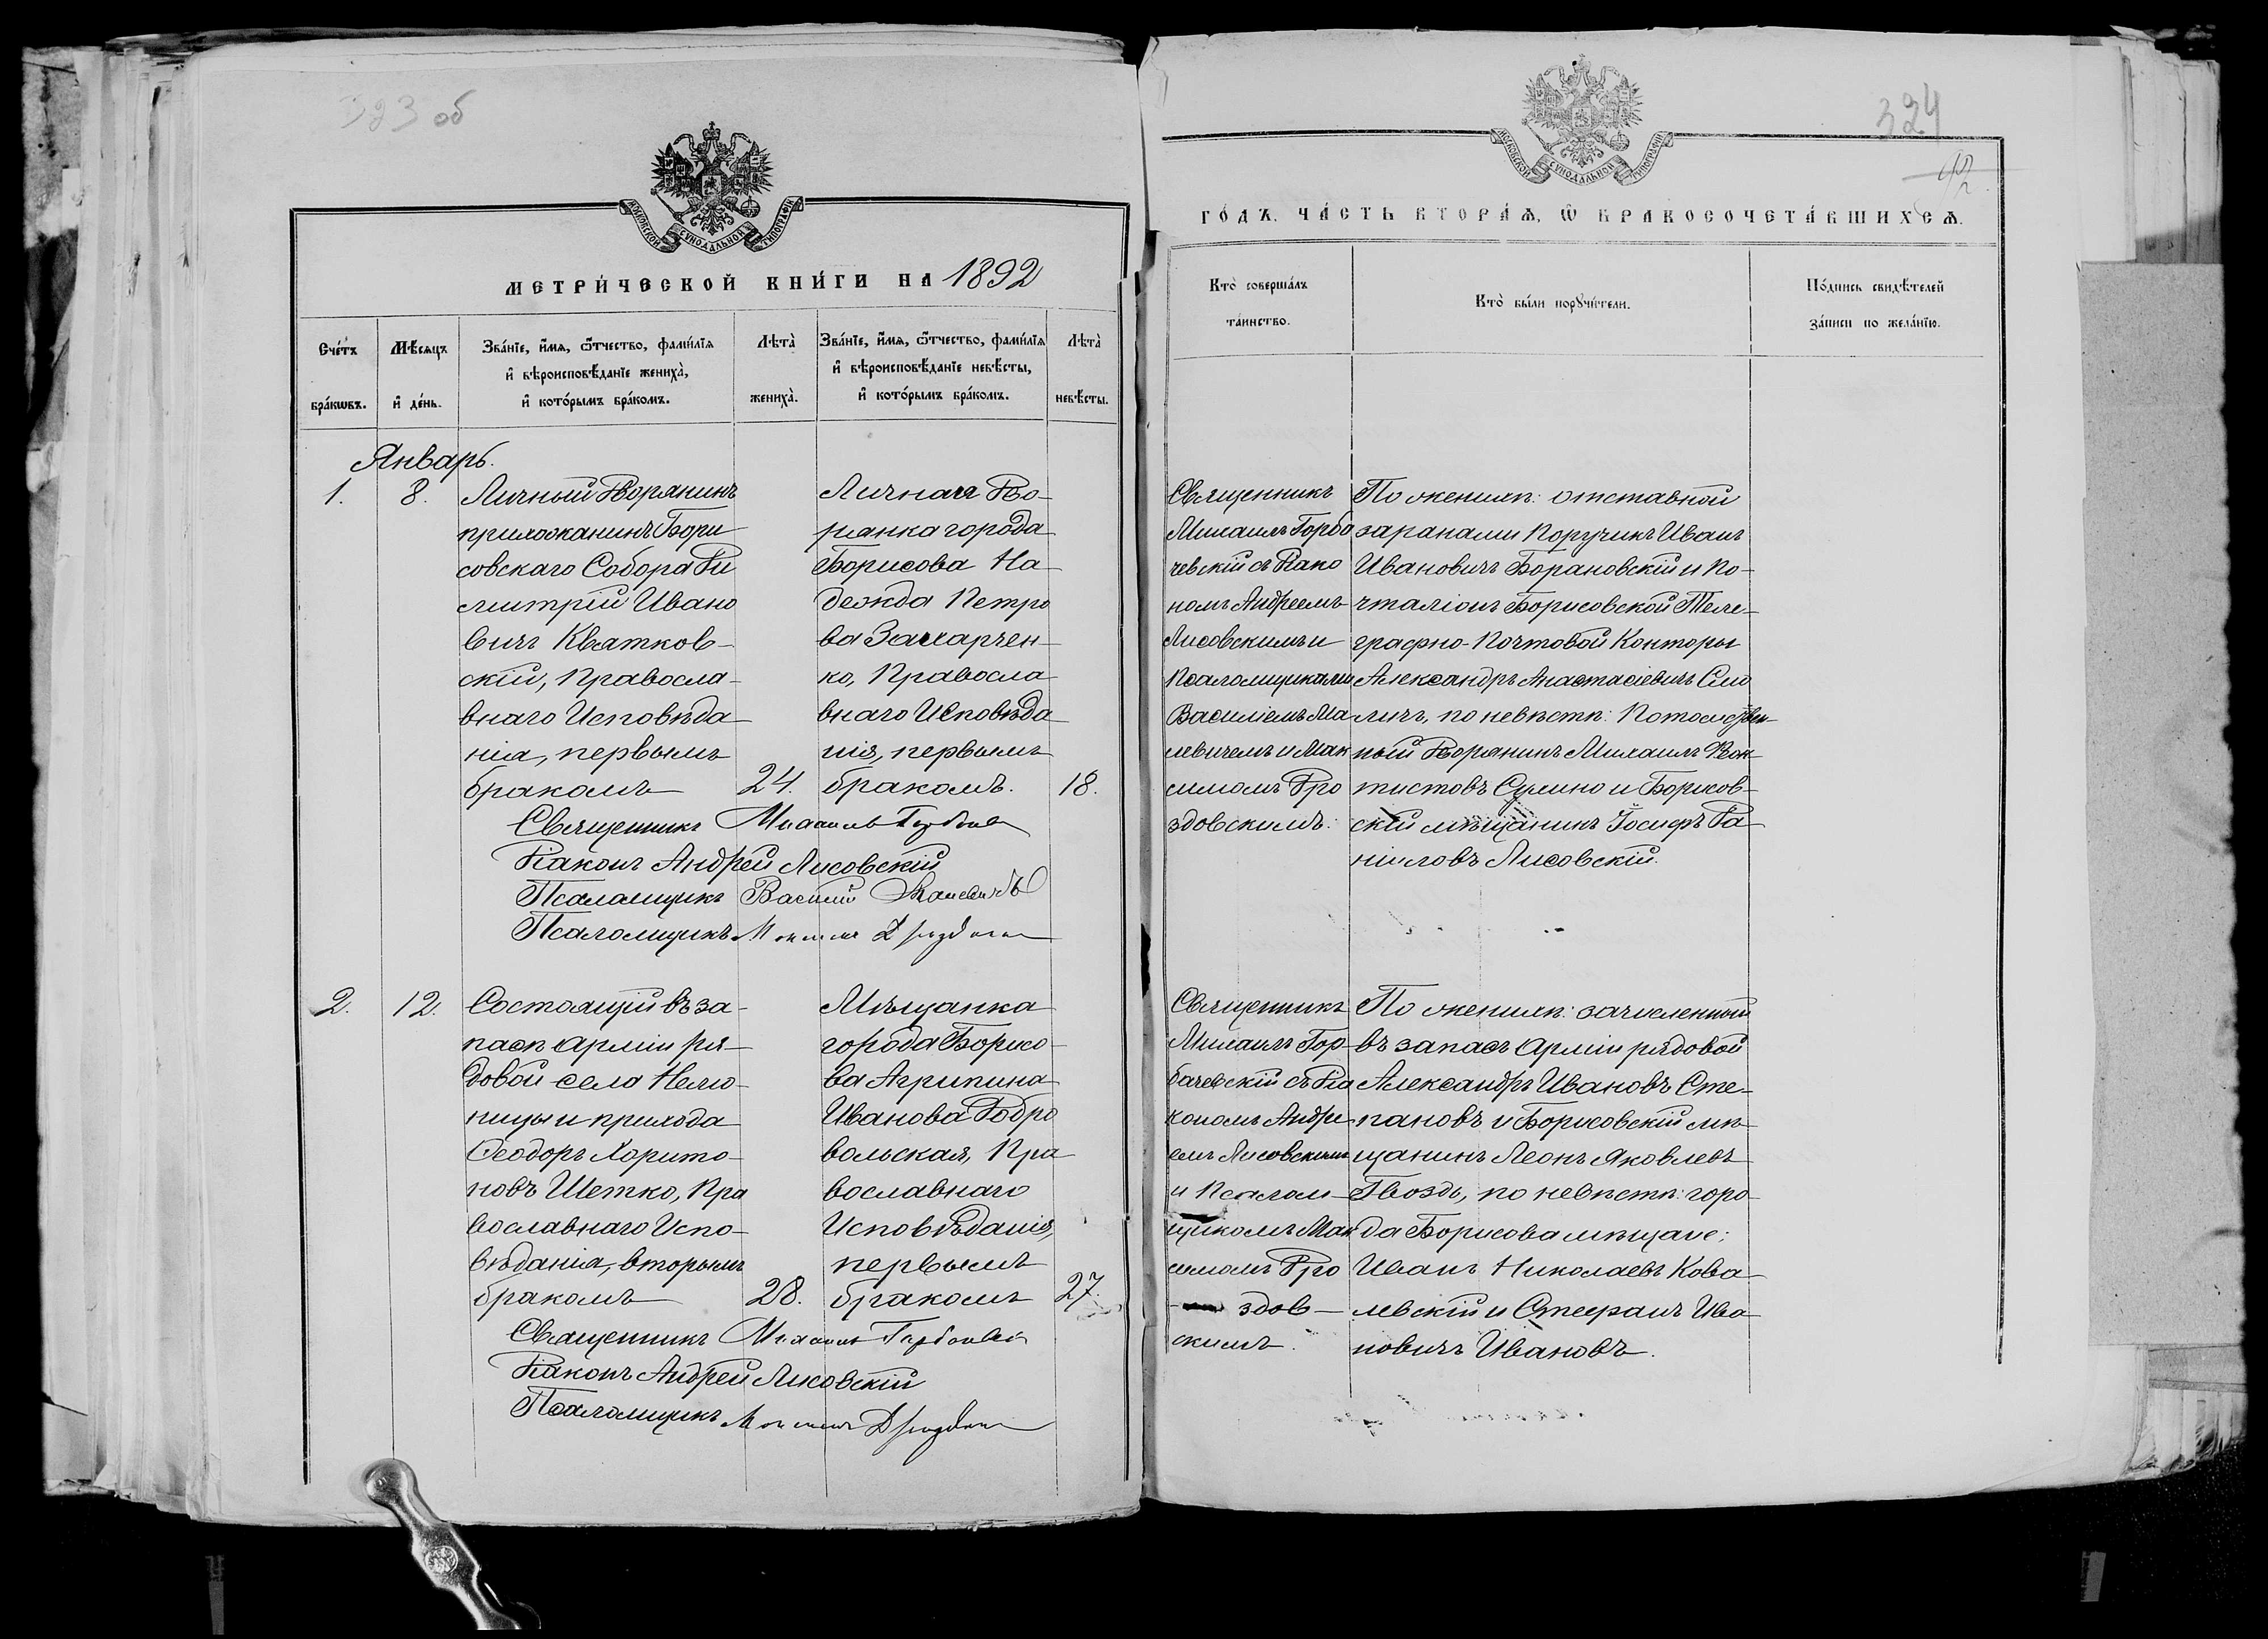 323 об
МОСКОВСКОЙ СУНОДАЛЬНОЙ ТИПОГРАФІИ
МЕТРИ́ЧЕСКОЙ КНИ́ГИ НА 1892
Сче́тъ бра́кѡвъ.
Мѣ́сяцъ и҆ де́нь.
Зва́нїе, и҆́мѧ, ѻ҆́тчество, фами́лїѧ
и҆ вѣроисповѣ́данїе женихà,
и҆ кото́рымъ бра́комъ.
Лѣ́та̀ женихà.
Зва́нїе, и҆́мѧ, ѻ҆́тчество, фами́лїѧ
и҆ вѣроисповѣ́данїе невѣ́сты,
и҆ кото́рымъ бра́комъ.
Лѣ́та̀ невѣ́сты.
Январь.
1.
8.
Личный Дворянинъ
прихожанинъ Бори
совскаго Собора Ди
митрій Ивано
вичъ Квятков-
скій, Правосла-
внаго Исповѣда
нія, первымъ
бракомъ
24.
Личная Дво-
рянка города
Борисова На
дежда Петро
ва Захарчен-
ко, Правосла
внаго Исповѣда
нія, первымъ
бракомъ.
18.
Священникъ Михаилъ
Діаконъ Андрей Лисовскій
Псаломщикъ Василій Малевичъ
Псаломщикъ
2.
12.
Состоящій въ за-
пасѣ Арміи ря-
довой села Немо-
ницы и прихода
Ѳеодоръ Харито-
новъ Шетко, Пра
вославнаго Испо-
вѣданія, вторымъ
бракомъ
28.
Мѣщанка
города Борисо-
ва Агрипина
Иванова Добро
вольская, Пра
вославнаго
Исповѣданія,
первымъ
бракомъ
27.
Священникъ Михаилъ
Діаконъ Андрей Лисовскій
Псаломщикъ
324
МОСКОВСКОЙ СУНОДАЛЬНОЙ ТИПОГРАФІИ
ГО́ДЪ, ЧА́СТЬ ВТОРА́Ѧ, Ѽ БРАКОСОЧЕТА́ВШИХСѦ.
Кто̀ соверша́лъ
та́инство.
Кто̀ бы́ли порꙋчи́тели.
По́дпись свидѣ́телей
за́писи по жела́нїю.
Священникъ
Михаилъ Горба
чевскій съ Діако
номъ Андреемъ
Лисовскимъ и
Псаломщиками
Василіемъ Ма
левичемъ и Мак
симомъ Дро
здовскимъ.
По женихѣ: отставной
за ранами Поручикъ Иванъ
Ивановичъ Барановскій и По-
чталіонъ Борисовской Теле-
графно-Почтовой Конторы
Александръ Анастасіевичъ Сма
личъ, по невѣстѣ: Потомствен-
ный Дворянинъ Михаилъ
Сулино и Борисов-
скій мѣщанинъ Іосифъ Да
ніиловъ Лисовскій.
Священникъ
Михаилъ Гор-
бачевскій съ Діа
кономъ Андре-
емъ Лисовскимъ
и Псалом-
щикомъ Мак
симомъ Дро
здов-
скимъ.
По женихѣ: зачисленный
въ запасъ Арміи рядовой
Александръ Ивановъ Сте-
пановъ и Борисовскій мѣ-
щанинъ Леонъ Яковлевъ
Гвоздь, по невѣстѣ: горо-
да Борисова мѣщане:
Иванъ Николаевъ Кова-
левскій и Стефанъ Ива
новичъ Ивановъ.